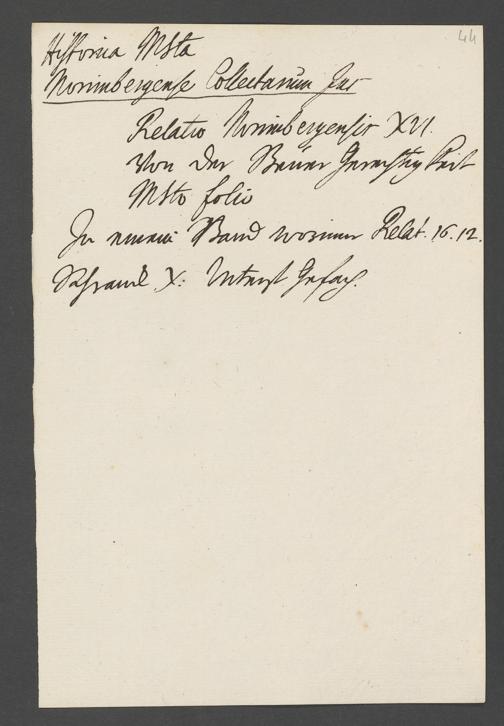 44
Historica Msta
Norimbergense Collectaneum
Relatio Norimbergensis XVI.
Von der Bauer Gerechtigkeit
Msto folio
In einem Band worinn Relat. 16.12.
Schranck X. Unterst Gefach.